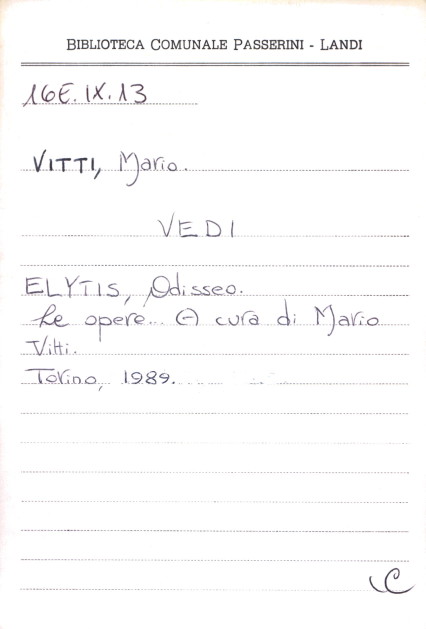 BIBLIOTECA COMUNALE PASSERINI - LANDI
16E.IX.13
VITTI, Mario.
VEDI
ELYTIS, Odisseo.
Le opere... (-) cura di Mario
Vitti.
Torino, 1989.
C